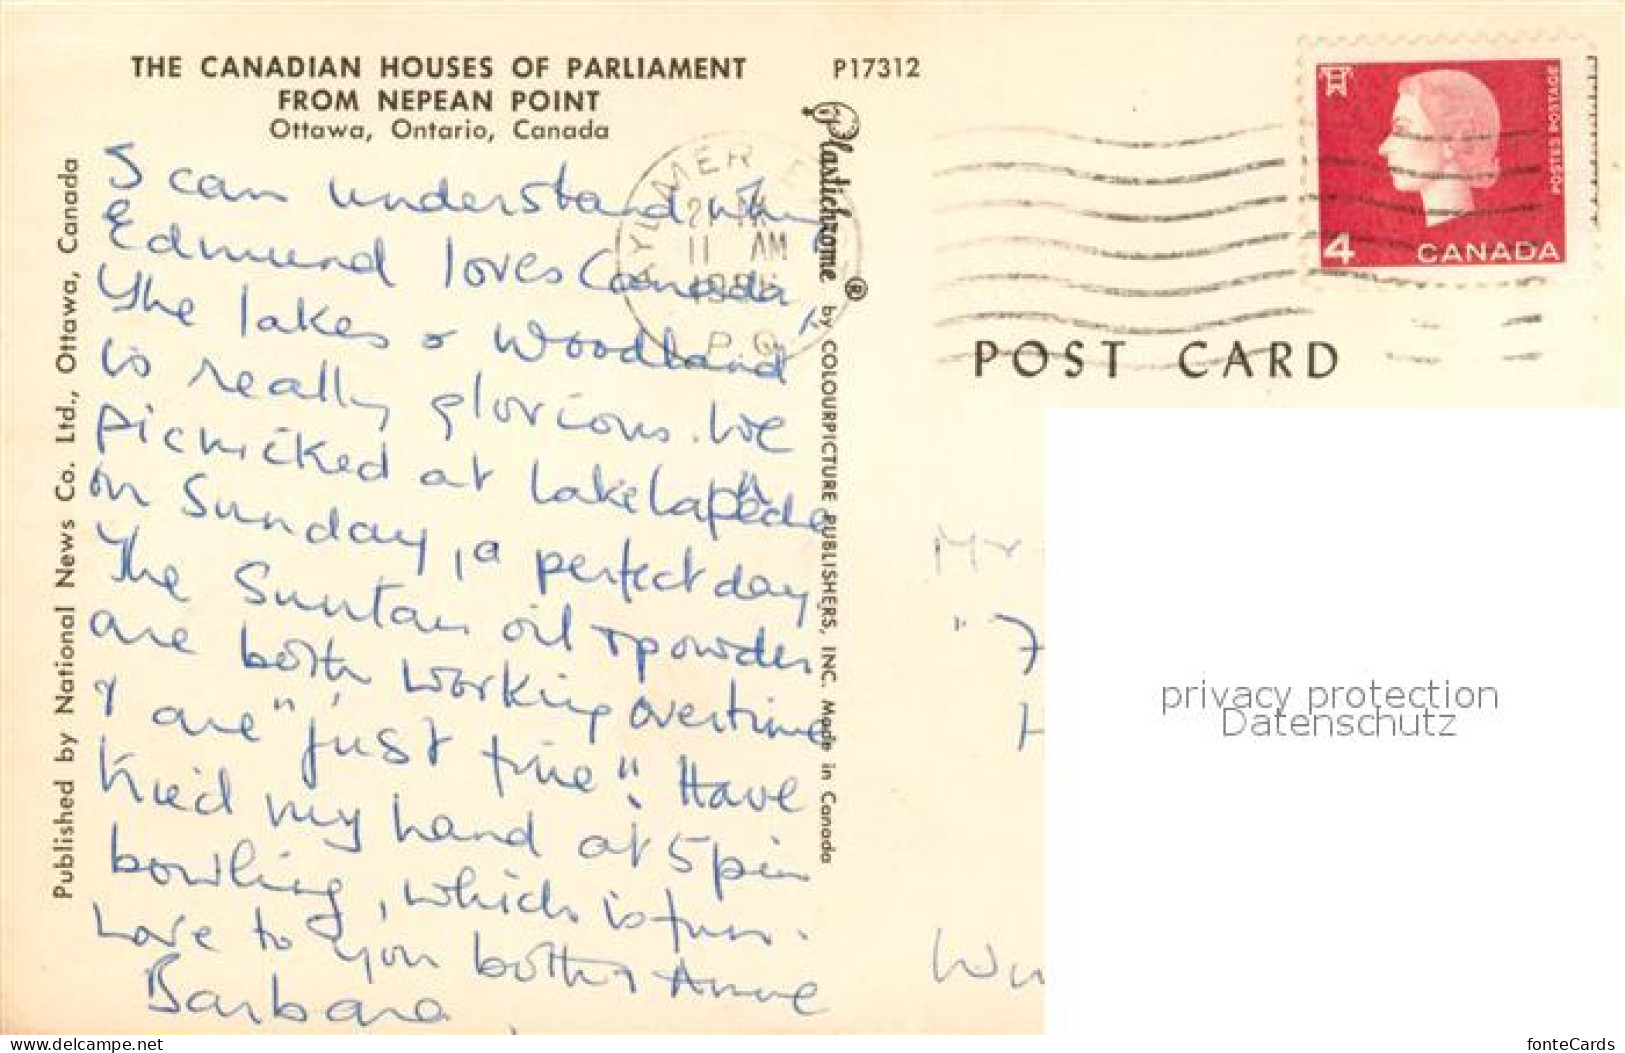 THE CANADIAN HOUSES OF PARLIAMENT
FROM NEPEAN POINT
Ottawa, Ontario, Canada
P17312
I can understand why
Edmund loves Canada,
The lakes & woodland
is really glorious. We
picnicked at Lake
on Sunday, a perfect day
The Suntan oil & powder
are both working overtime
& are "just fine". Have
tried my hand at 5 pin
bowling, which is fun.
Love to you both & Anne
Barbara
Published by National News Co. Ltd., Ottawa, Canada
Plastichrome ® by COLOURPICTURE PUBLISHERS, INC. Made in Canada
AYLMER E
11 AM
P Q
4 CANADA
POSTES POSTAGE
POST CARD
Mr
"7
H
privacy protection
Datenschutz
www.delcampe.net
fonteCards